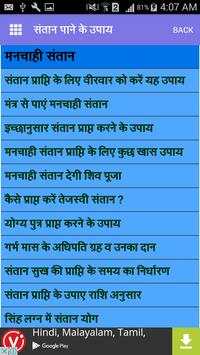 4:07 AM
संतान पाने के उपाय
BACK
मनचाही संतान
संतान प्राप्ति के लिए वीरवार को करें यह उपाय
मंत्र से पाएं मनचाही संतान
इच्छानुसार संतान प्राप्त करने के उपाय
मनचाही संतान प्राप्ति के लिए कुछ खास उपाय
मनचाही संतान देगी शिव पूजा
कैसे प्राप्त करें तेजस्वी संतान ?
योग्य पुत्र प्राप्त करने के उपाय
गर्भ मास के अधिपति ग्रह व उनका दान
संतान सुख की प्राप्ति के समय का निर्धारण
संतान प्राप्ति के उपाए राशि अनुसार
सिंह लग्न में संतान योग
Hindi, Malayalam, Tamil,
Google Play